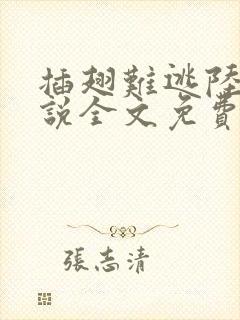 插翅難逃陸
說全文免費
張志清